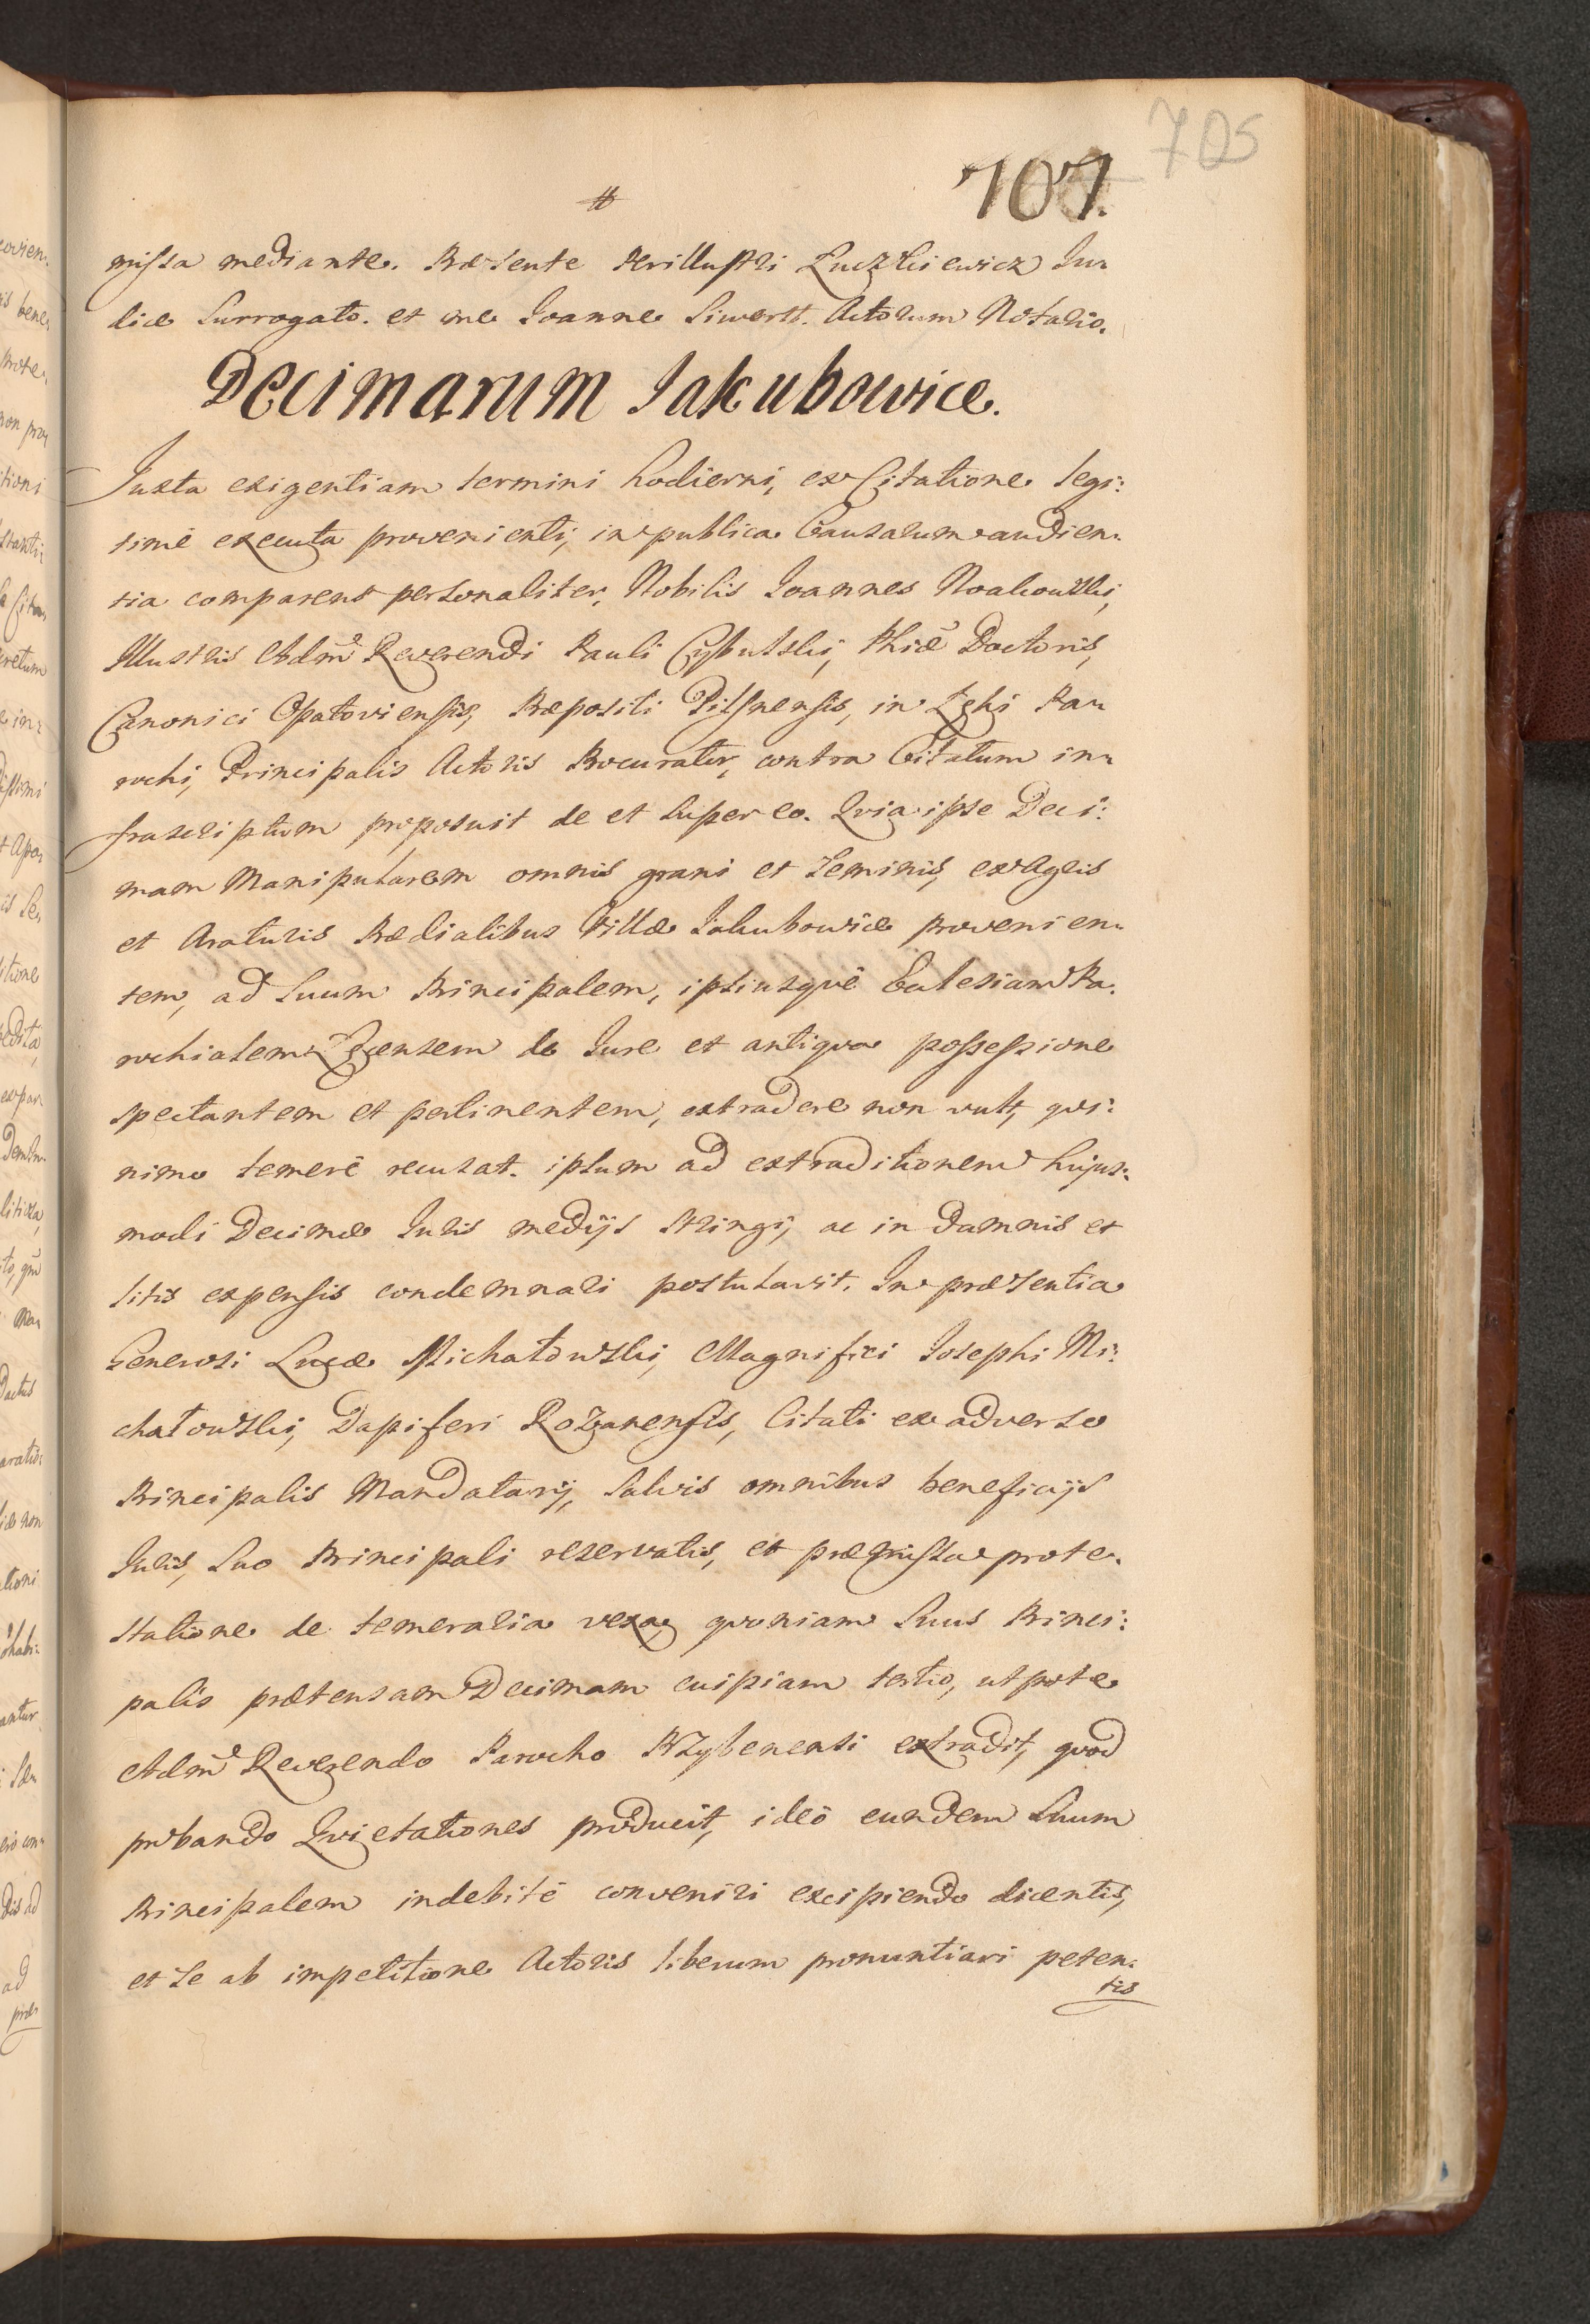 705
707.
#
missa mediante. Præsente Perillustri Łuczkiewicz Ju-
dice Surrogato. et me Joanne Siwertt. Actorum Notario.
Decimarum Jakubowice.
Juxta exigentiam termini hodierni, ex Citatione legi:
timè executa provenienti, in publica Causarum audien-
tia comparens personaliter, Nobilis Joannes Noakowski,
Illustris Adm̃ Reverendi Pauli Cybulski, Phiæ Doctoris,
Canonici Opatoviensis, Præpositi Pilsnensis, in Pa-
rochi, Principalis Actoris Procurator, contra Citatum in-
frascriptum proposuit de et super eo. Quia ipse Deci:
mam Manipularem omnis grani et seminis, ex Agris
et Araturis Prædialibus Villæ Jakubowice provenien-
tem, ad suum Principalem, ipsiusquè Ecclesiam Pa-
rochialem de Jure et antiqua possessione
spectantem et pertinentem, extradere non vult, qui:
nimo temerè recusat. ipsum ad extraditionem hujus-
modi Decimæ Juris medijs stringi, ac in damnis et
litis expensis condemnari postulavit. In præsentia
Generosi Lucæ Michałowski, Magnifici Josephi Mi:
chałowski, Dapiferi Rozanensis, Citati ex adverso
Principalis Mandatarij, salvis omnibus beneficijs
Juris, suo Principali reservatis, et præmissa prote-
statione de temeraria vexa, quoniam suus Princi:
palis prætensam Decimam cuipiam tertio, utpote
Adm̃ Reverendo Parocho Przybenensi extradit, quod
probando Quietationes producit, ideò eundem suum
Principalem indebitè conveniri excipiendo dicentis,
et se ab impetitione Actoris liberum pronuntiari peten-
tis